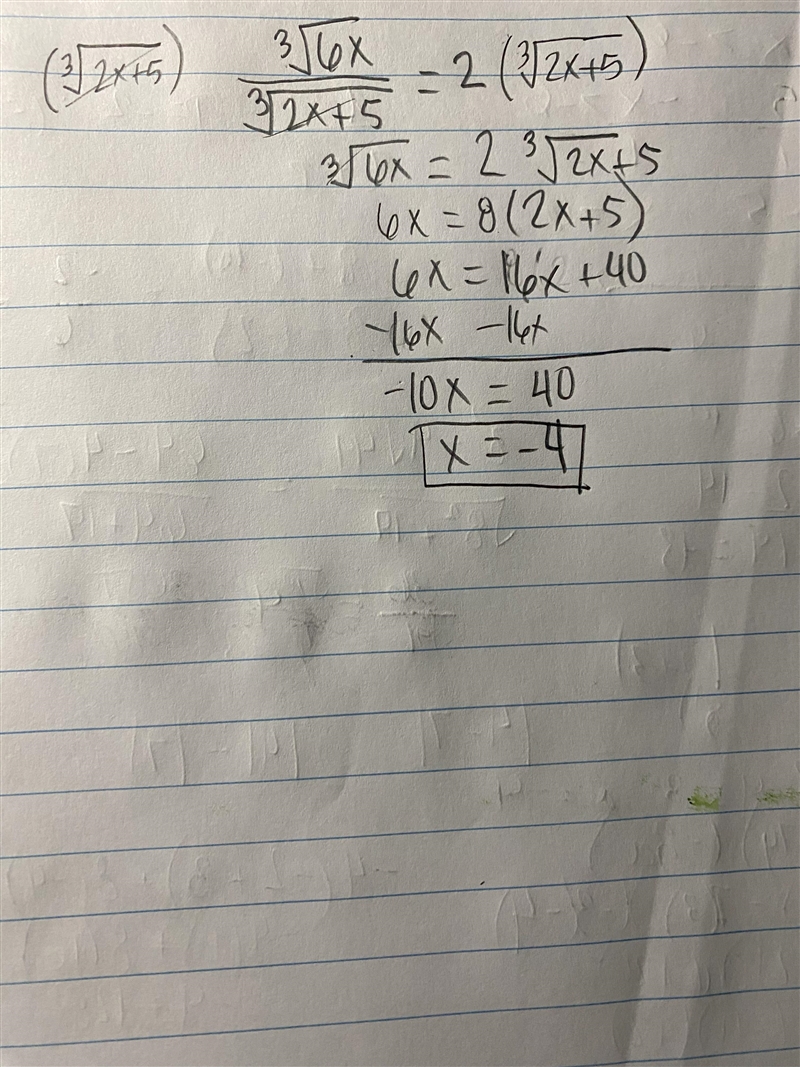 (∛(2x+5)) ∛(6x) / ∛(2x+5) = 2 (∛(2x+5))
∛(6x) = 2 ∛(2x)+5
6x = 8(2x+5)
6x = 16x +40
-16x -16x
-10x = 40
x = -4